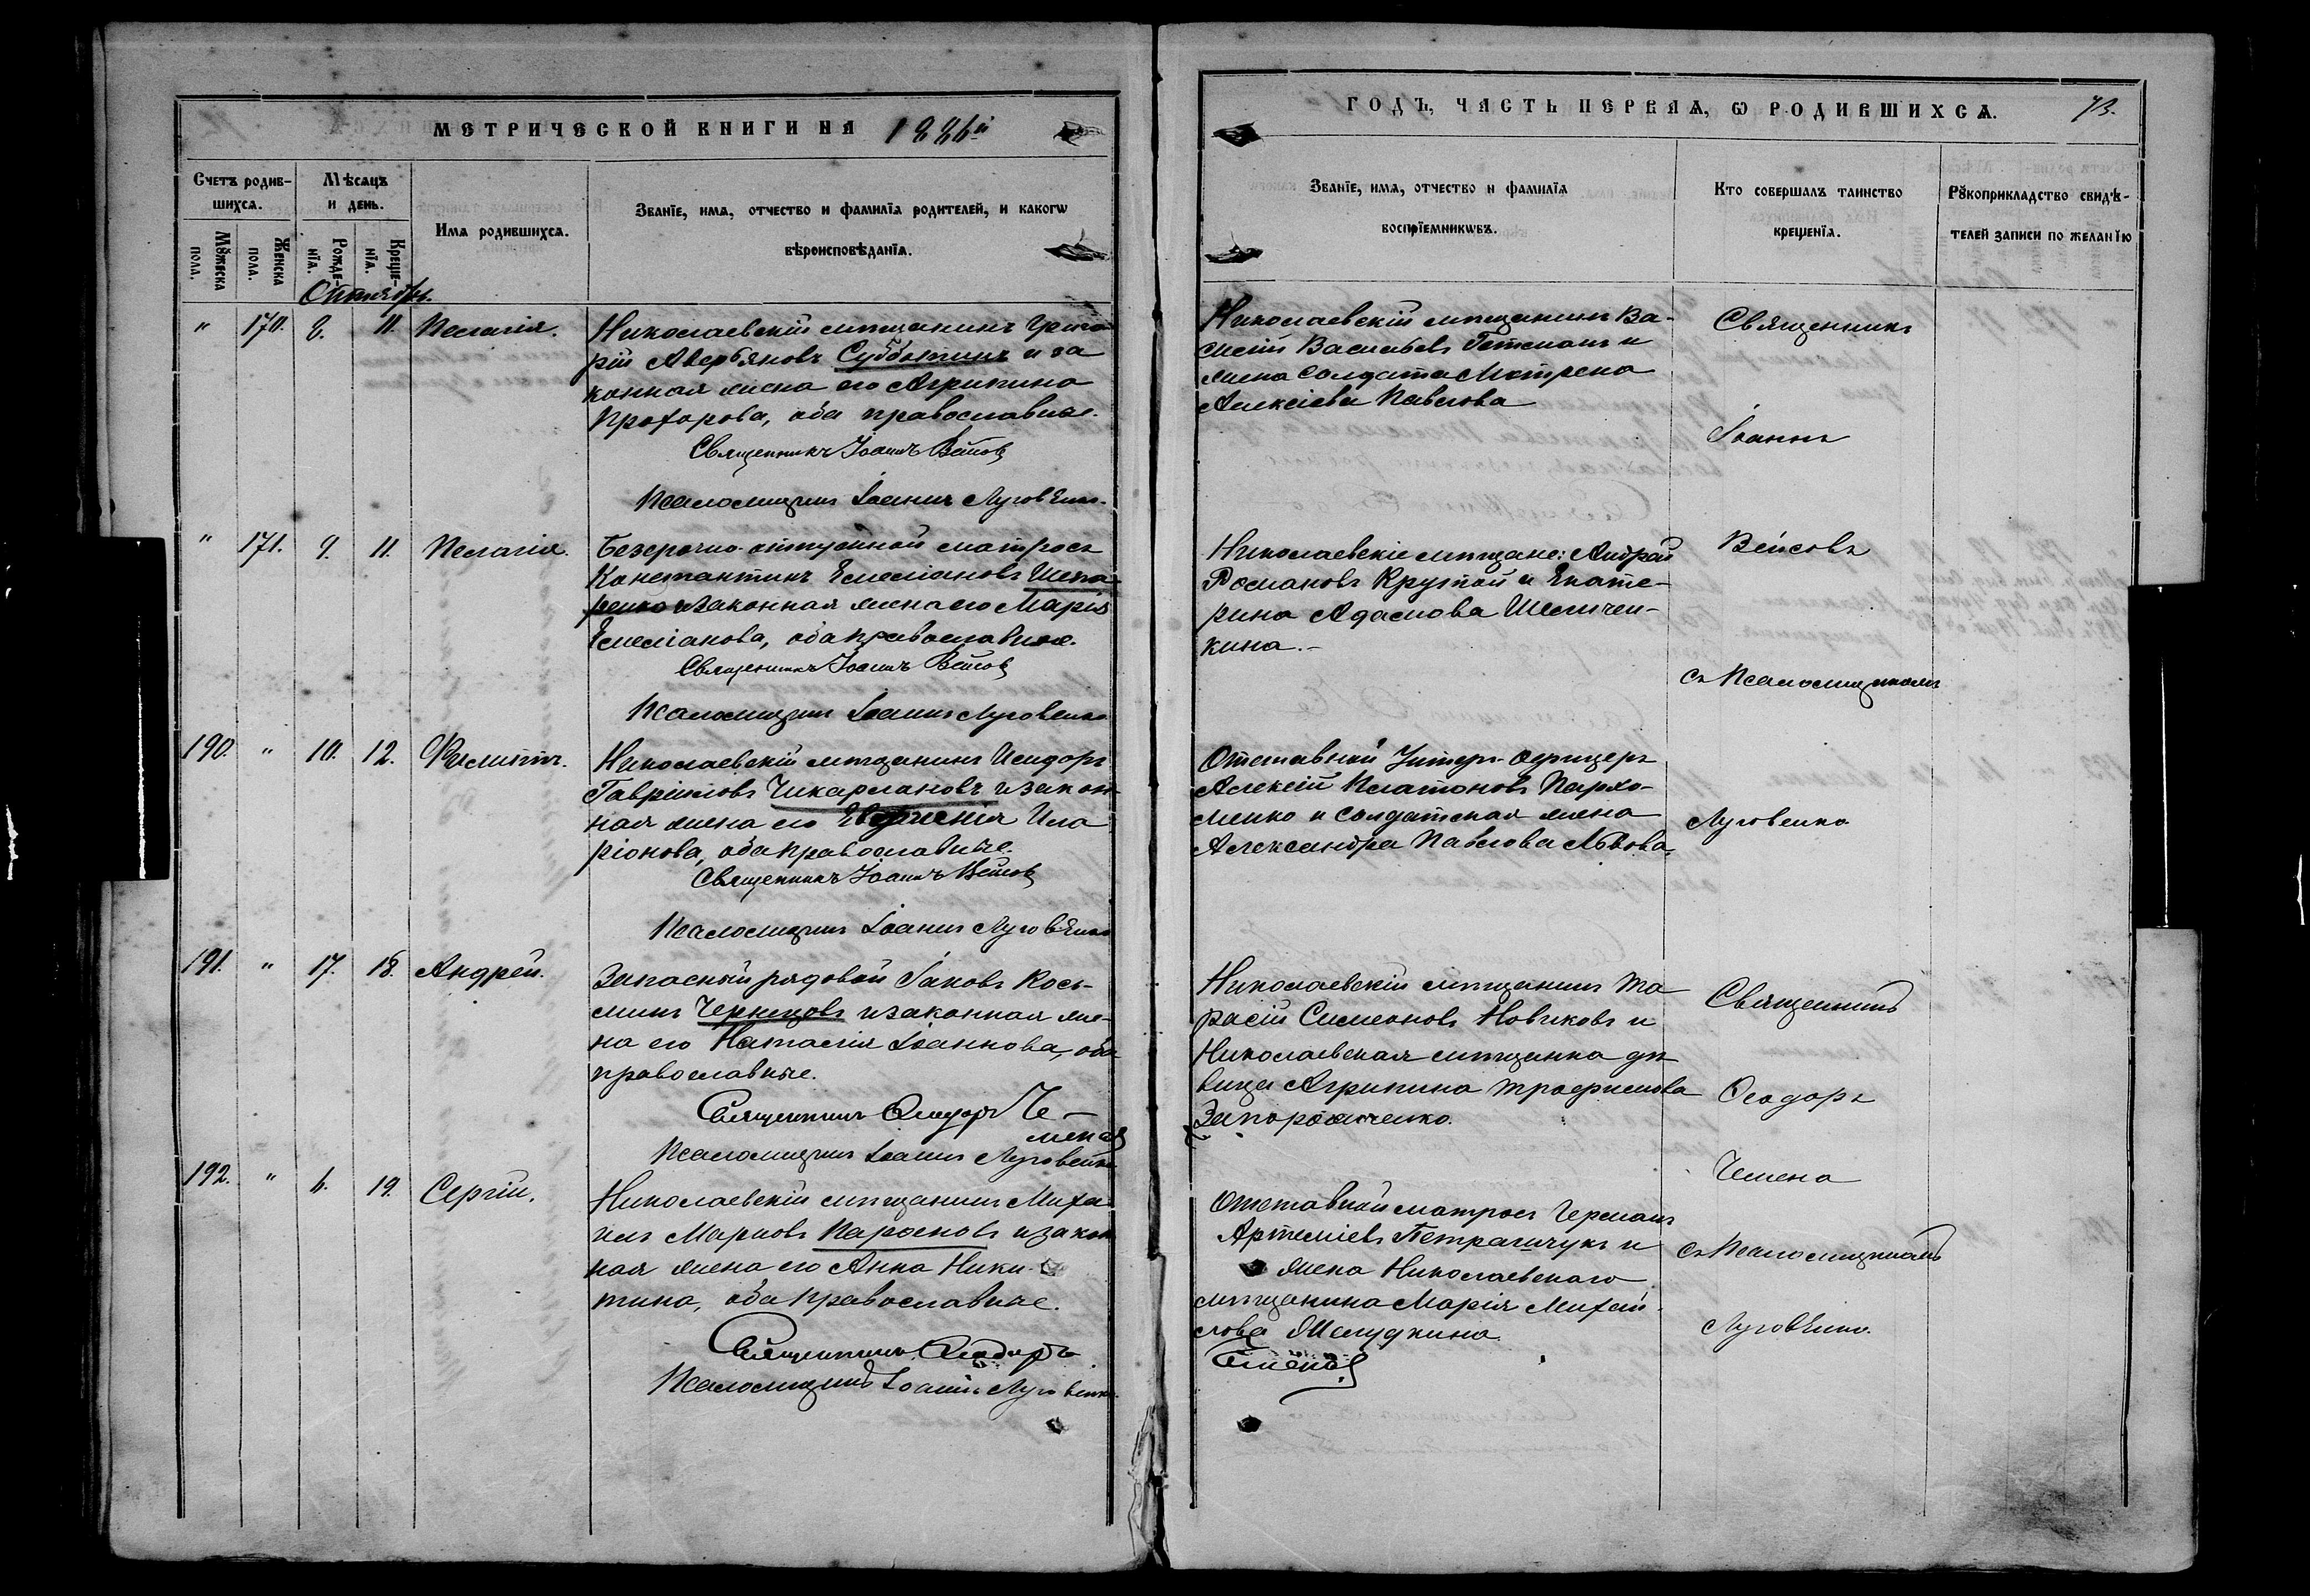 МЕТРИЧЕСКОЙ КНИГИ НА 1886й
Счетъ родив-
шихся.
Мѣсяцъ
и день.
Имя родившихся.
Званіе, имя, отчество и фамилія родителей, и какогѡ
вѣроисповѣданія.
Мужеска
пола.
Женска
пола.
Рожде-
нія.
Креще-
нія.
Октябрь.
" 170. 8. 11. Пелагія. Николаевскій мѣщанинъ Григо
рій Аверьяновъ Субботинъ и за
конная жена его Агрипина
Прохорова, оба православные.
Священникъ Іоаннъ
Псаломщикъ Іоаннъ Луговенко.
" 171. 9. 11. Пелагія. Безсрочно-отпускной матросъ
Константинъ Емеліановъ
и законная жена его Марія
Емеліанова, оба православные.
Священникъ Іоаннъ
Псаломщикъ Іоаннъ Луговенко
190. " 10. 12. Филиппъ. Николаевскій мѣщанинъ Исидоръ
Гавріиловъ Чикарлановъ и закон
ная жена его Евфимія Ила
ріонова, оба православные.
Священникъ Іоаннъ
Псаломщикъ Іоаннъ Луговенко
191. " 17. 18. Андрей. Запасный рядовой Іаковъ Кось-
минъ Чернецовъ и законная же-
на его Наталія Іоаннова, оба
православные.
Священникъ Ѳеодоръ Че-
мена
Псаломщикъ Іоаннъ Луговенко
192. " 6. 19. Сергій. Николаевскій мѣщанинъ Миха
илъ Марковъ и закон
ная жена его Анна Ники-
тина, оба православные.
Священникъ Ѳеодоръ
Псаломщикъ Іоаннъ Луговенко.
ГОДЪ, ЧАСТЬ ПЕРВАЯ, Ѡ РОДИВШИХСЯ. 73.
Званіе, имя, отчество и фамилія
воспріемникѡвъ.
Кто совершалъ таинство
крещенія.
Рукоприкладство свидѣ-
телей записи по желанію
Николаевскій мѣщанинъ Ва-
силій Васильевъ Гетманъ и
жена солдата Матрена
Алексіева Павлова
Николаевскіе мѣщане: Андрей
Романовъ Крутой и Екате-
рина Адамова
кина.-
Отставный Унтеръ-офицеръ
Алексій Платоновъ Пархо-
менко и солдатская жена
Александра Павлова Львова.
Николаевскій мѣщанинъ Та
расій Симеоновъ Новиковъ и
Николаевская мѣщанка дѣ
вица Агрипина Трофимова
Запорожченко.
Отставной матросъ Германъ
Артеміевъ Петрашчукъ и
жена Николаевскаго
мѣщанина Марія Михай-
лова Желудкина.
Чемена
Священникъ
Іоаннъ
Вейсовъ
съ Псаломщикомъ
Луговенко
Священникъ
Ѳеодоръ
Чемена
съ Псаломщикомъ
Луговенко.